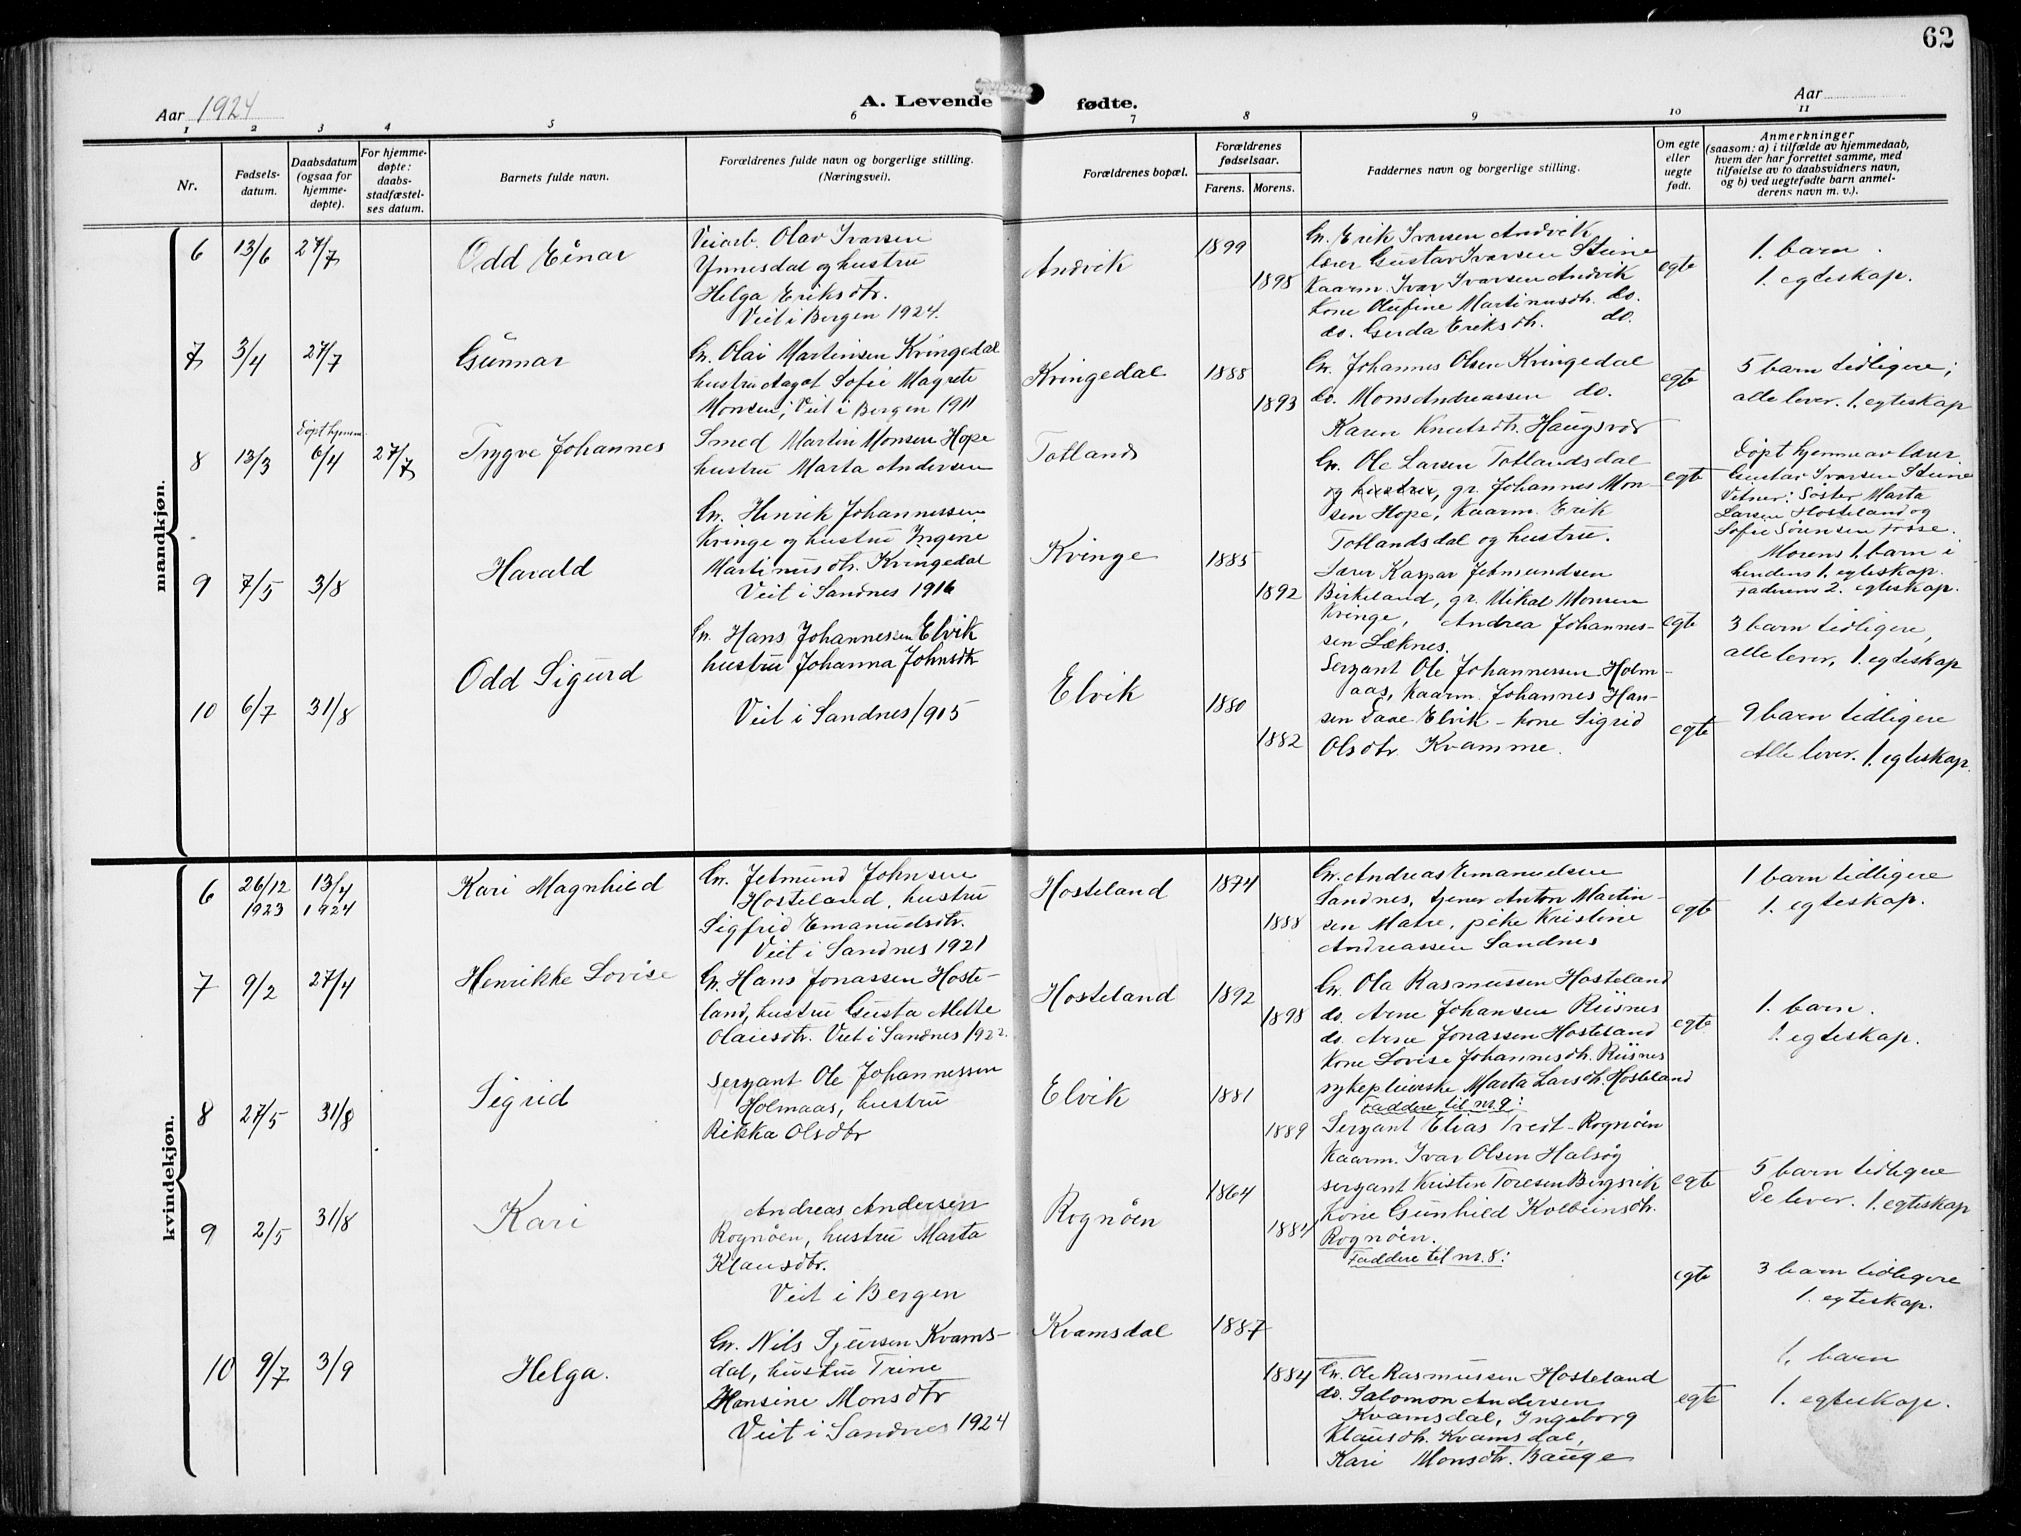 62
Aar 1924
A. Levende fødte.
Aar
1 2 3 4 5 6 7 8 9 10 11
Nr.
Fødsels-
datum.
Daabsdatum
(ogsaa for
hjemme-
døpte).
For hjemme-
døpte:
daabs-
stadfæstel-
ses datum.
Barnets fulde navn.
Forældrenes fulde navn og borgerlige stilling.
(Næringsvei).
Forældrenes bopæl.
Forældrenes
fødselsaar.
Farens. Morens.
Faddernes navn og borgerlige stilling.
Om egte
eller
uegte
født.
Anmerkninger
(saasom: a) i tilfælde av hjemmedaab,
hvem der har forrettet samme, med
tilføielse av to daabsvidners navn,
og b) ved uegtefødte barn anmel-
derens navn m. v.).
mandkjøn.
6 13/6 27/7
Odd Einar
Veiarb. Olav Ivarsen
Ynnesdal og hustru
Helga Eriksdtr.
Veit i Bergen 1924.
Andvik
1899
1898
Gr. Erik Ivarsen Andvik
lærer Gustav Ivarsen Steine
Kaarm. Ivar Ivarsen Andvik
Kone Olufine Martinusdtr. do.
do. Gerda Eriksdtr. do.
egte
1. barn.
1. egteskap.
7 3/4 27/7
Gunnar
Gr. Olai Martinsen Kvingedal
hustru Aagot Sofie Magrete
Monsen, Veit i Bergen 1911
Kvingedal
1888
1893
Gr. Johannes Olsen Kvingedal
do. Mons Andreassen do.
Karen Knutsdtr. Haugsvær
egte
5 barn tidligere;
alle lever. 1. egteskap
8 13/3
Døpt hjemme
6/4 27/7
Trygve Johannes
Smed Martin Monsen Hope
hustru Marta Andersen
Totland
Gr. Ole Larsen Totlandsdal
og hustru, gr. Johannes Mon-
sen Hope, kaarm. Erik
Totlandsdal og hustru.
egte
Døpt hjemme av lærer
Gustav Ivarsen Steine
Vitner: Søster Marta
Larsen Hosteland og
Sofie Sørensen Fosse.
Morens 1. barn i
hendens 1. egteskap.
Faderens 2. egteskap.
9 7/5 3/8
Harald
Gr. Henrik Johannessen
Kvinge og hustru Ingine
Martinusdtr. Kvingedal
Veit i Sandnes 1916
Kvinge
1885
1892
Lærer Kaspar Jetmundsen
Birkeland, gr. Mikal Monsen
Kvinge, Andrea Johannes-
sen Løknes.
egte
3 barn tidligere,
alle lever, 1. egteskap
10 6/7 31/8
Odd Sigurd
Gr. Hans Johannessen Elvik
hustru Johanna Johnsdtr
Veit i Sandnes 1905
Elvik
1880
1882
Sersjant Ole Johannessen Holm-
aas, kaarm. Johannes Han-
sen Elvik - kone Sigrid
Olsdtr Kvamme.
egte
9 barn tidligere
Alle lever. 1. egteskap.
kvindekjøn.
6 26/12 13/4
1923 1924
Kari Magnhild
Gr. Jetmund Johnsen
Hosteland, hustru
Sigfrid Emanuelsdtr.
Veit i Sandnes 1921
Hosteland
1874
1888
Gr. Andreas Emanuelsen
Sandnes, tjener Anton Martin-
sen Matre, pike Kristine
Andreassen Sandnes
egte
1 barn tidligere
1. egteskap.
7 9/2 27/4
Henrikke Lovise
Gr. Hans Jonassen Hoste-
land, hustru Gusta Mette
Olaisdtr. Veit i Sandnes 1922
Hosteland
1892
1898
Gr. Ola Rasmussen Hosteland
do. Arne Johansen Riisnes
do. Arne Jonassen Hosteland
Kone Lovise Johannesdtr. Riisnes
sykepleierske Marta Larsdtr. Hosteland
egte
1. barn.
1. egteskap.
8 27/5 31/8
Sigrid
Sersjant Ole Johannessen
Holmaas, hustru
Rikka Olsdtr
Elvik
1881
1889
Faddere til nr. 9:
Sersjant Elias Rognøen
Kaarm. Ivar Olsen Halsøg
sersjant Kristen Toresen Birgsvik
Kone Gunhild Kolbeinsdtr.
Rognøen.
egte
5 barn tidligere
De lever. 1. egteskap
9 2/5 31/8
Kari
Andreas Andersen
Rognøen, hustru Marta
Klausdtr.
Veit i Bergen
Rognøen
1864
1884
Faddere til nr. 8:
egte
3 barn tidligere
1. egteskap.
10 9/7 3/9
Helga.
Gr. Nils Sjursen Kvams-
dal, hustru Trine
Hansine Monsdtr
Veit i Sandnes 1924
Kvamsdal
1887
1884
Gr. Ole Rasmussen Hosteland
do. Salomon Andersen
Kvamsdal, Ingeborg
Klausdtr. Kvamsdal,
Kari Monsdtr. Bauge
egte
1. barn
1. egteskap.